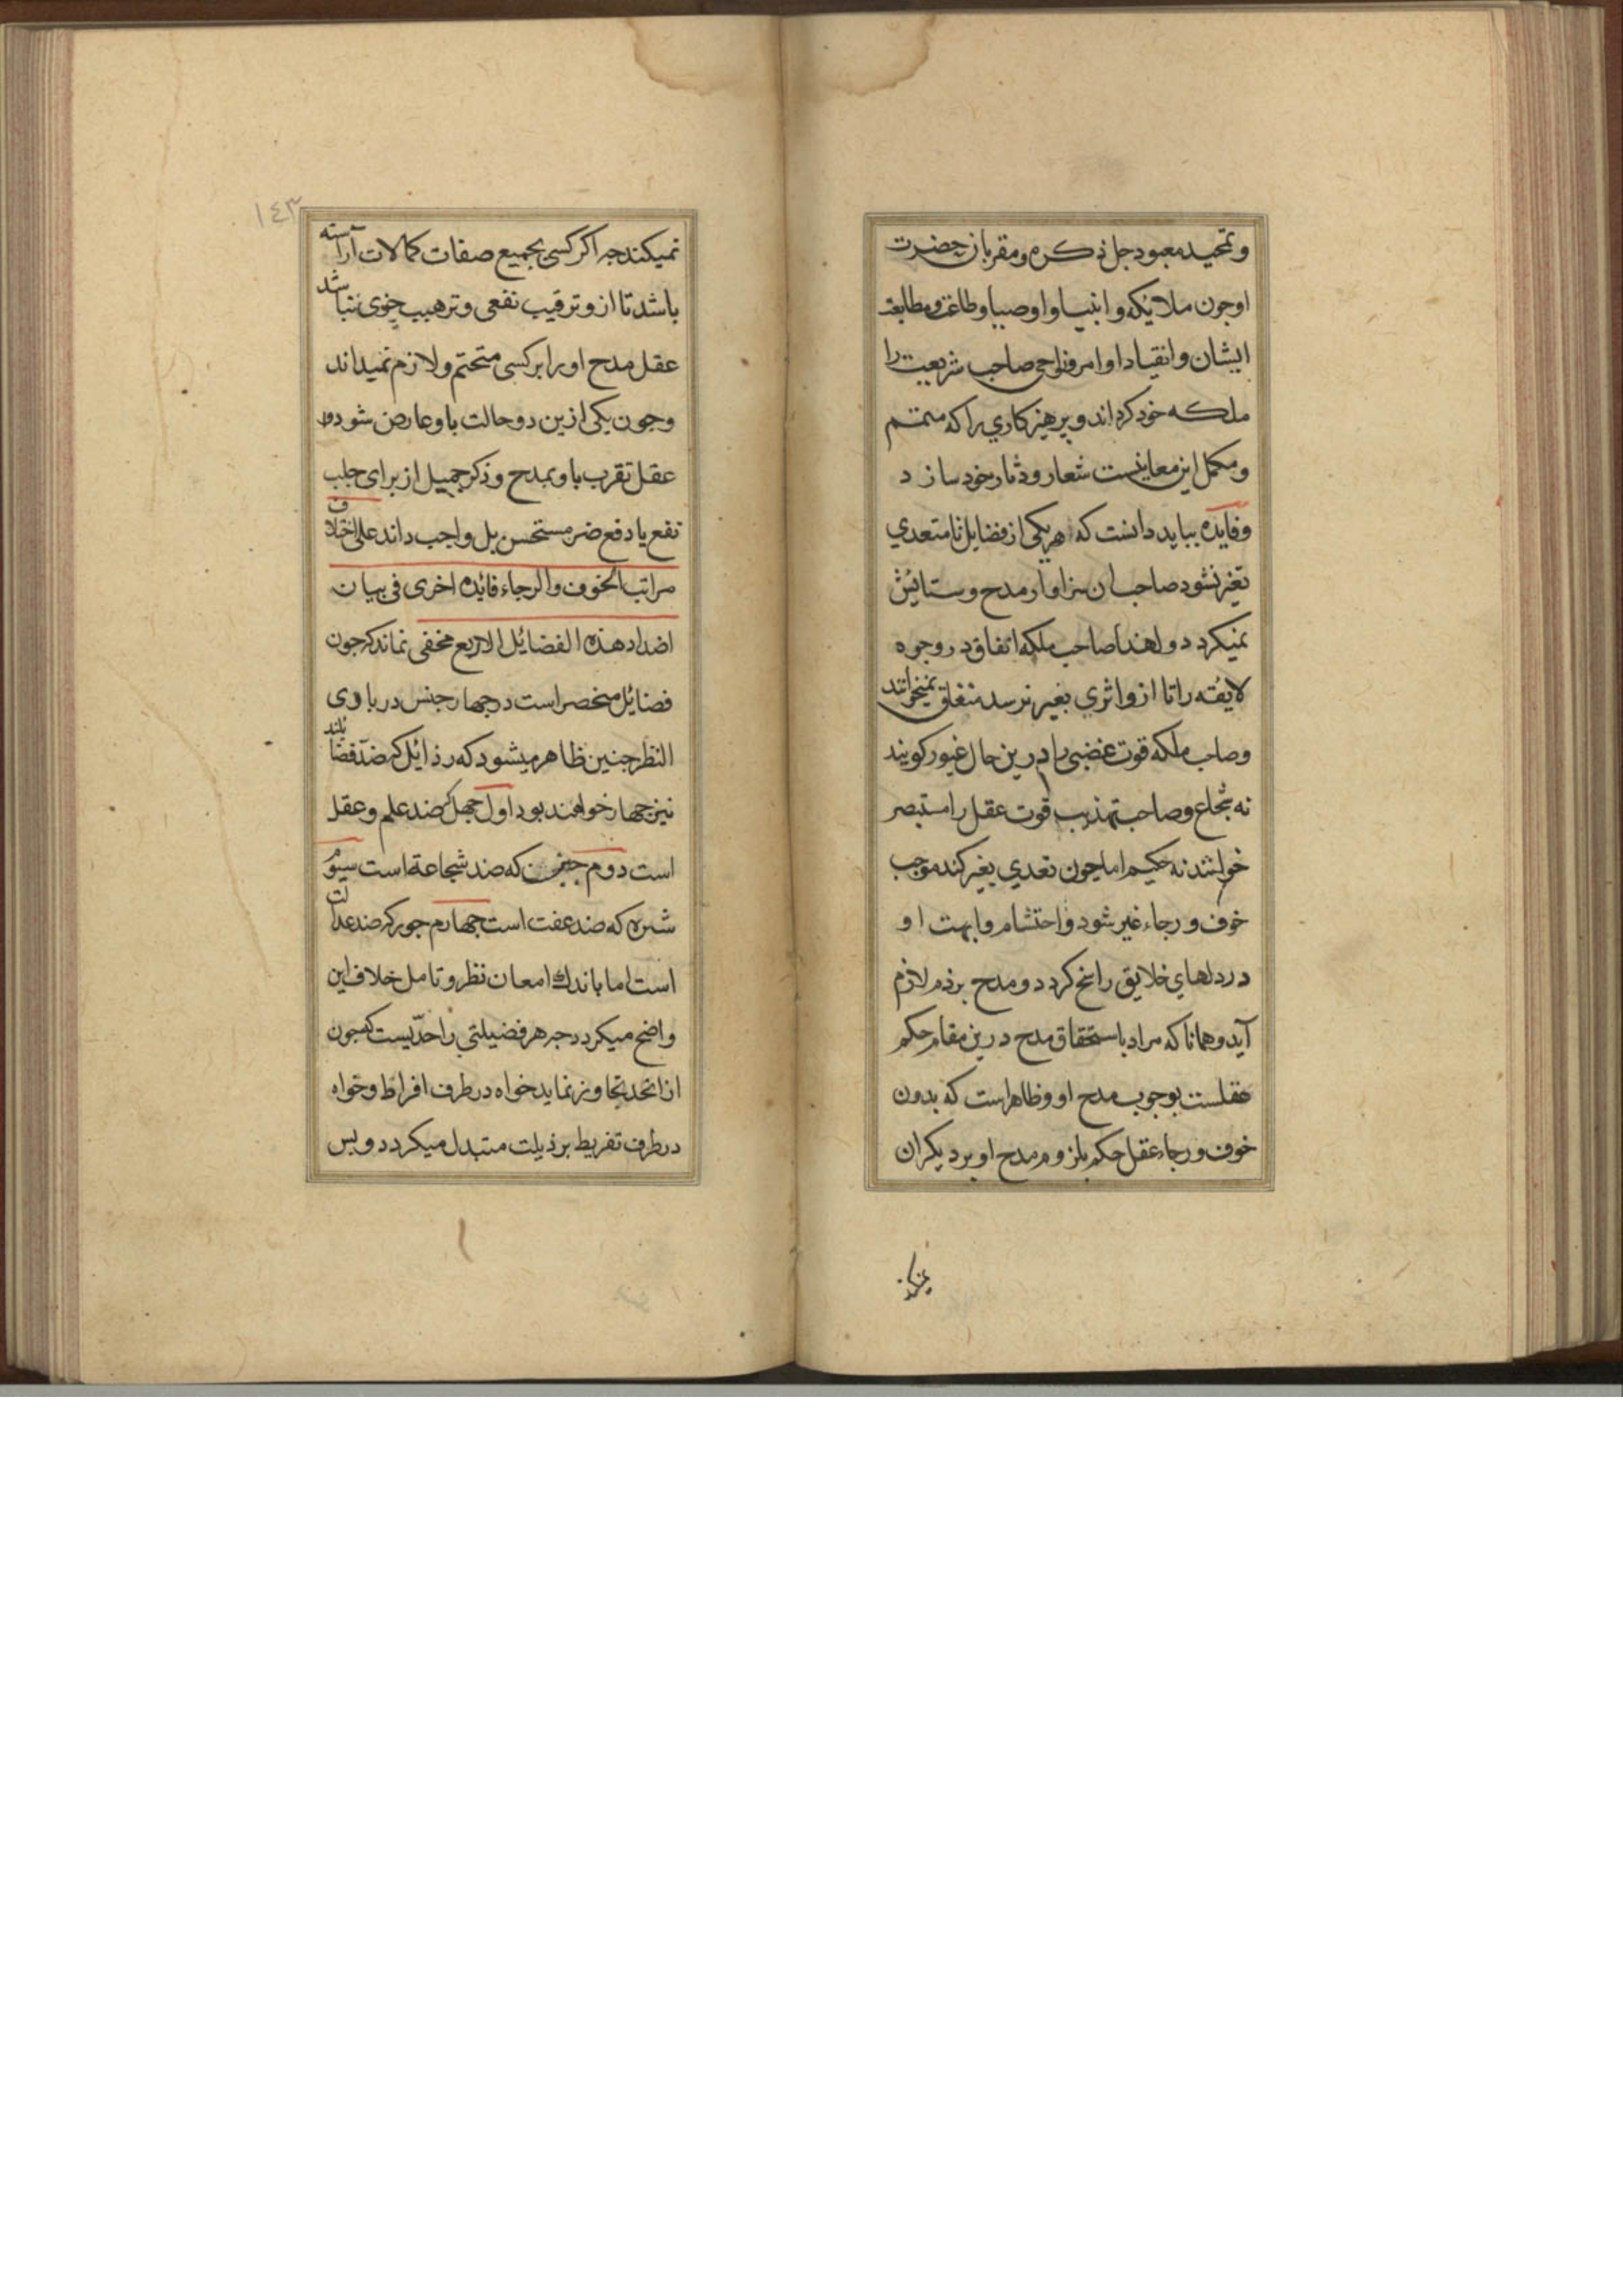 و تمحید معبود جل ذکره و مقربان حضرت
او جون ملایکه و انبیا و اوصیا و طاعت و مطابعت
ایشان و انقیاد اوامر و نواحی صاحب شریعت را
ملکه خود کرداند و پرهیزکاری را که متمم
و مکمل این معانیست شعار و دثار خود سازد
و فایده بباید دانست که هر یکی از فضایل تا متعدی
بغیر نشود صاحب ان سزاوار مدح و ستایش
نمیکردد و لهذا صاحب ملکه انفاق در وجوه
لایقه را تا ازو اثری بغیر نرسد منفاق نمیخوانند
و صاحب ملکه قوت غضبی را درین حال غیور کویند
نه شجاع و صاحب تهذیب قوت عقل را مستبصر
خوانند نه حکیم اما جون تعدی بغیر کند موجب
خوف و رجاء غیر شود و احتشام و ابهت او
در دلهای خلایق راسخ کردد و مدح بر ذم لازم
آید و همانا که مراد باستحقاق مدح درین مقام حکم
عقلست بوجوب مدح او و ظاهر است که بدون
خوف و رجاء عقل حکم بلزوم مدح او بر دیکران
نمیکند
١٤٣
نمیکند جه اکر کسی بجمیع صفات کمالات آراسته
باشد تا ازو ترقیب نفعی و ترهیب خوی نباشد
عقل مدح او را بر کسی متحتم و لازم نمیداند
و جون یکی ازین دو حالت باو عارض شود
عقل تقرب باو بمدح و ذکر جمیل از برای جلب
نفع یا دفع ضر مستحسن بل واجب داند علی اختلاف
مراتب الخوف و الرجاء فائده اخری فی بیان
اضداد هذه الفضائل الاربع مخفی نماند که جون
فضائل منحصر است در جهار جنس در بادی
النظر جنین ظاهر میشود که رذائل که ضد فضائلند
نیز جهار خواهند بود اول جهل که ضد علم و عقل
است دوم جبن که ضد شجاعة است سیوم
شره که ضد عفت است جهارم جور که ضد عدالت
است اما باندك امعان نظر و تامل خلاف این
واضح میکردد جه هر فضیلتی را حدّیست که جون
از انحد تجاوز نماید خواه در طرف افراط و خواه
در طرف تفریط برذیلت متبدل میکردد و بس